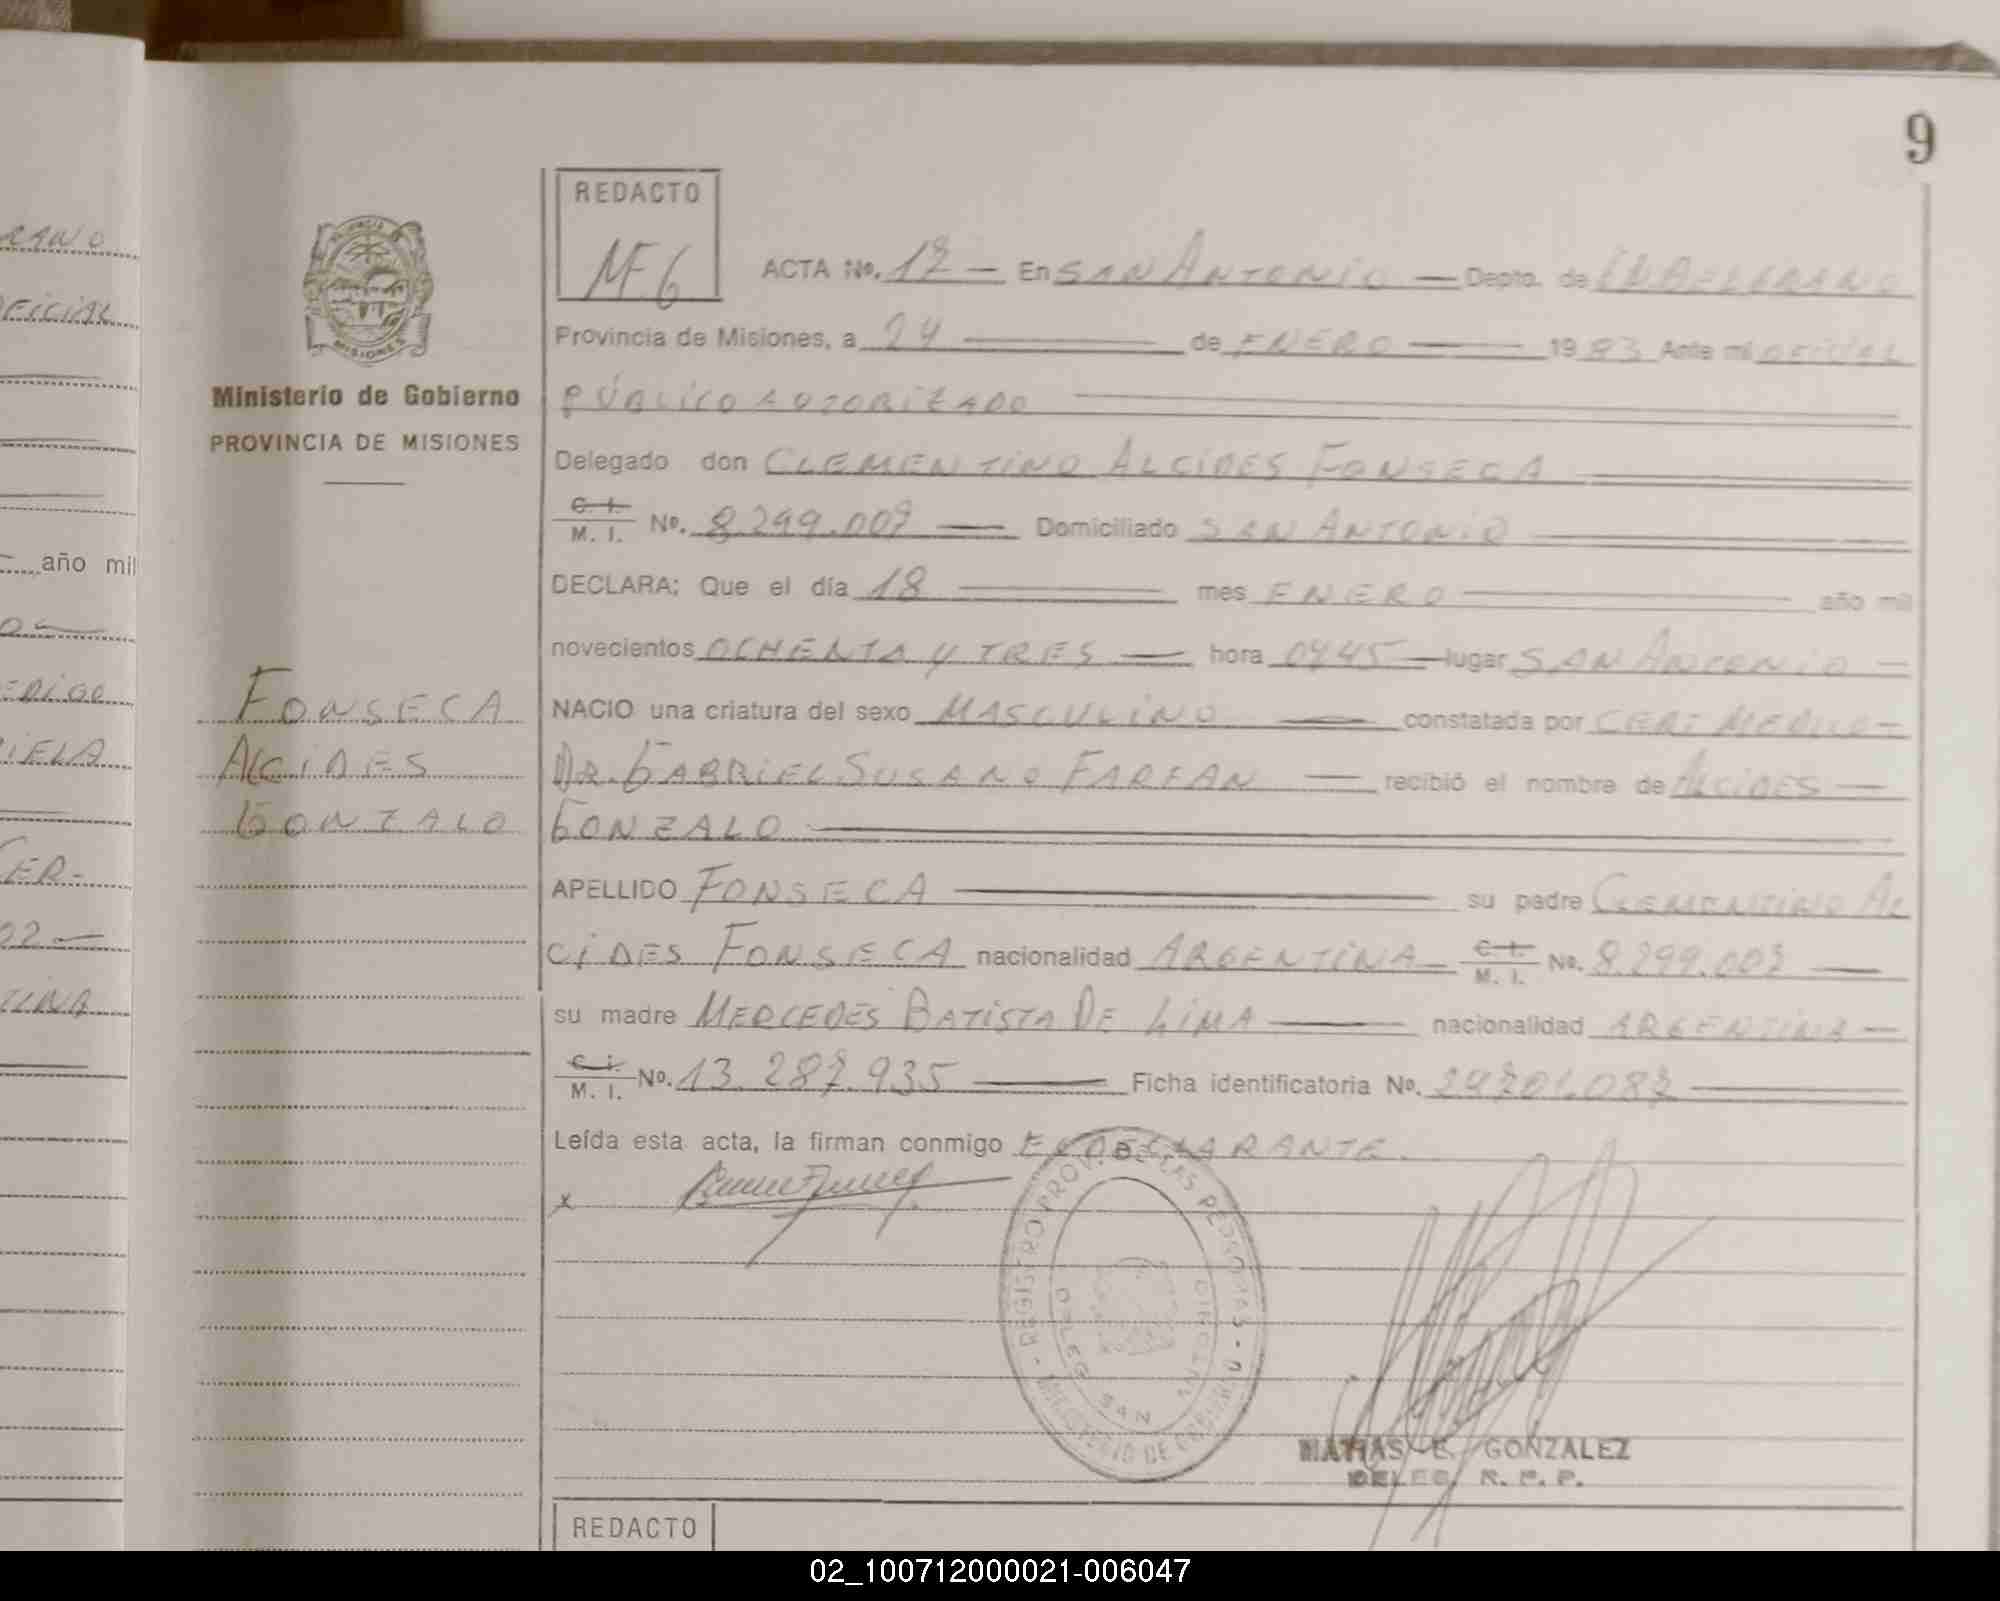 9
RANO
OFICIAL
año mil
REDACTO
M.G
ACTA No. 17 — En SAN ANTONIO — Depto. de GRAL BELGRANO
Provincia de Misiones, a 24 — de ENERO — 1983 Ante mi OFICIAL
PÚBLICO AUTORIZADO
Delegado don CLEMENTINO ALCIDES FONSECA
C. I.
M. I. No. 8.299.007 — Domiciliado SAN ANTONIO
DECLARA: Que el día 18 — mes ENERO — año mil
novecientos OCHENTA Y TRES — hora 0445 — lugar SAN ANTONIO —
NACIO una criatura del sexo MASCULINO — constatada por CERT MEDICO —
DR. GABRIEL SUSANO FARFAN — recibió el nombre de ALCIDES —
GONZALO
APELLIDO FONSECA — su padre CLEMENTINO AL
CIDES FONSECA nacionalidad ARGENTINA — C. I.
M. I. No. 8.299.007 —
su madre MERCEDES BATISTA DE LIMA — nacionalidad ARGENTINA —
C. I.
M. I. No. 13.287.935 — Ficha identificatoria No. 29701.087 —
Leída esta acta, la firman conmigo EL DECLARANTE.
x
Ministerio de Gobierno
PROVINCIA DE MISIONES
FONSECA
ALCIDES
GONZALO
PROVINCIA
MISIONES
REGISTRO PROV. DE LAS PERSONAS
MINISTERIO DE GOBIERNO
DELEG. SAN ANTONIO
MATIAS E. GONZALEZ
DELEG. R. P. P.
REDACTO
02_100712000021-006047